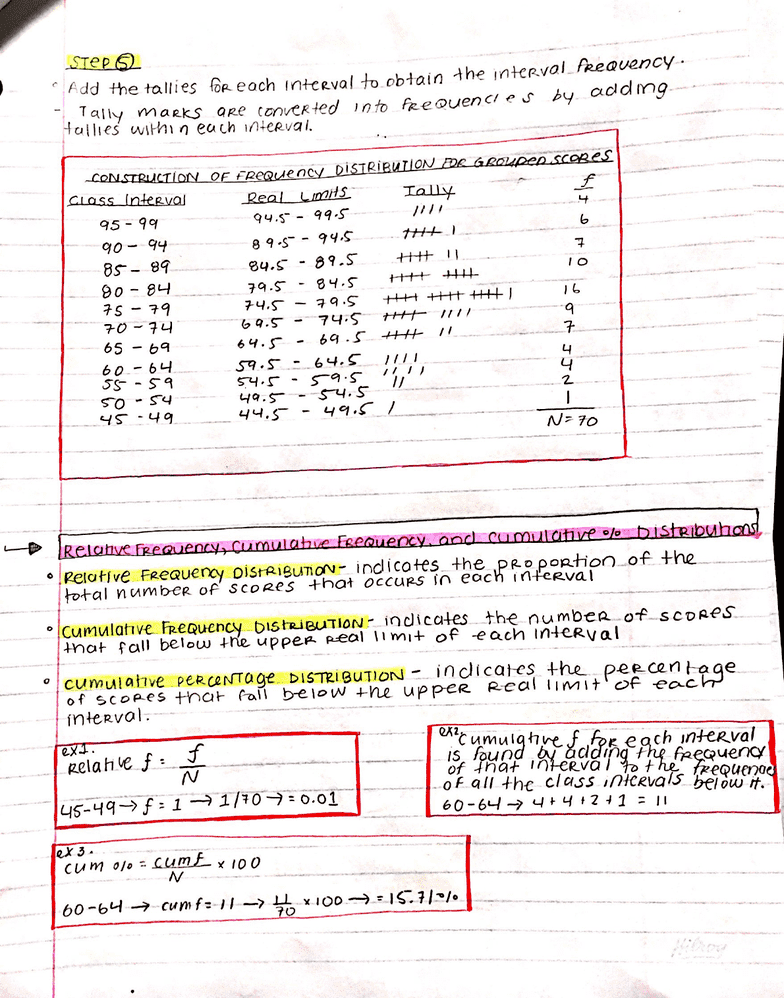 STEP 5
Add the tallies for each interval to obtain the interval frequency.
- Tally marks are converted into frequencies by adding
tallies within each interval.
CONSTRUCTION OF FREQUENCY DISTRIBUTION FOR GROUPED SCORES
Class Interval Real Limits Tally f
95 - 99 94.5 - 99.5 //// 4
90 - 94 89.5 - 94.5 ++++ | 6
85 - 89 84.5 - 89.5 ++++ || 7
80 - 84 79.5 - 84.5 ++++ ++++ 10
75 - 79 74.5 - 79.5 ++++ ++++ ++++ | 16
70 - 74 69.5 - 74.5 ++++ //// 9
65 - 69 64.5 - 69.5 ++++ || 7
60 - 64 59.5 - 64.5 //// 4
55 - 59 54.5 - 59.5 //// 4
50 - 54 49.5 - 54.5 // 2
45 - 49 44.5 - 49.5 / 1
N = 70
Relative Frequency, Cumulative Frequency, and Cumulative % Distributions
• Relative Frequency Distribution - indicates the proportion of the
total number of scores that occurs in each interval
• Cumulative Frequency Distribution - indicates the number of scores
that fall below the upper real limit of each interval
• Cumulative Percentage Distribution - indicates the percentage
of scores that fall below the upper real limit of each
interval.
ex1.
Relative f = f/N
45-49 → f = 1 → 1/70 → = 0.01
ex2. Cumulative f for each interval
is found by adding the frequency
of that interval to the frequencies
of all the class intervals below it.
60-64 → 4+4+2+1 = 11
ex3.
cum % = cum f/N × 100
60-64 → cum f = 11 → 11/70 × 100 → = 15.71%
Hilroy